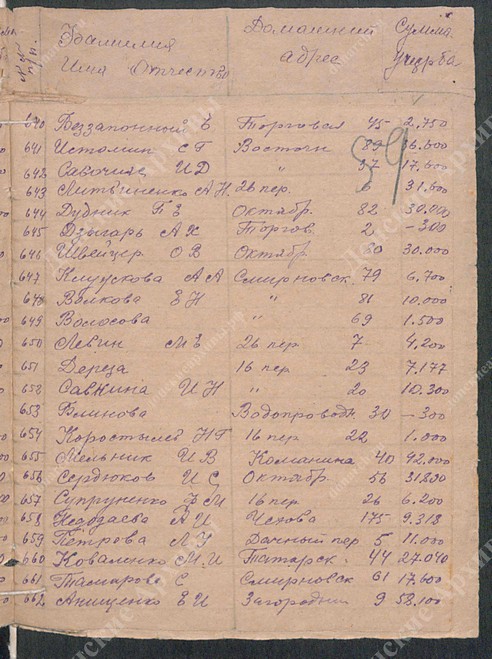 №№ п/п. Фамилия Имя Отчество Домашний адрес Сумма ущерба
640 Беззапонный Е Торговая 45 2.750
641 Истомин С Г Восточн 89 36.000
642 И Д " 37 17.600
643 Литвиненко А Н. 26 пер. 6 31.600
644 Дудник Г Е Октябр. 82 30.000
645 А К Торгов. 2 -300
646 Швейцер О В Октябр. 60 30.000
647 А А Смирновск. 79 6.700
648 Волкова Е Н " 81 10.000
649 Волосова " 69 1.500
650 Левин М Е 26 пер 7 4.200
651 Дереза 16 пер 23 7.177
652 Савкина И Н " 20 10.300
653 Блинова Водопроводн 30 -300
654 Коростылев Н Г 16 пер 22 1.000
655 Мельник И В Команина 40 92.000
656 Сердюков И С Октябр. 56 31800
657 Супруненко Е М 16 пер 26 6.200
658 А И Чехова 175 9.318
659 Петрова Л Н Дачный пер 5 11.000
660 Коваленко М.И Татарск. 44 27.040
661 С Смирновск 61 17.600
662 Анищенко Е И Загородн 9 58.100
59